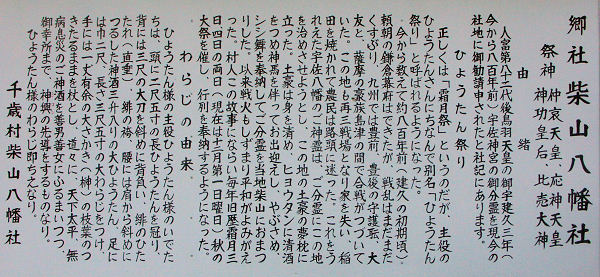 郷社 柴山八幡社
祭神 仲哀天皇、応神天皇
神功皇后、比売大神
由緒
人皇第八十二代後鳥羽天皇の御宇建久三年(
今から八百年前)宇佐神宮の御分霊を現今の
社地に御勧請申されたと社記にあります。
ひょうたん祭り
正しくは「霜月祭」というのだが、主役の
ひょうたんさんにちなんで別名「ひょうたん
祭り」と呼ばれるようになった。
今から数えて約八百年前(建久の初期頃)
頼朝の鎌倉幕府はできたが、戦乱はまだまだ
くすぶり、九州では豊前、豊後の守護職、大
友と、薩摩の豪族島津の間で合戦がつづいて
いた。この地も再三戦場となり家を失い、稲
田を焼かれて農民は路頭に迷った。これをう
れえた宇佐八幡のご神霊は、ご分霊にこの地
を治めさせようとし、この地の土豪の夢枕に
立った。土豪は身を清め、ヒョウタンに清酒
をつめ神馬を伴ってお出迎えし、やぶさめ、
シシ舞を奉納してご分霊を当地柴山におまつ
りした。以来戦火もしずまり平和がよみがえ
った。村人はこの故事にならい毎年旧歴霜月三
日四日の両日(現在は十二月第一日曜日)秋の
大祭を催し、行列を奉納するようになった。
わらじの由来
ひょうたん祭の主役ひょうたん様のいでた
ちは、頭に二尺五寸の長ひょうたんを冠り、
背には三尺の大刀を斜めに背負い、緋のひた
たれ(直垂)、緋の袴、腰には肩から斜めに
つるした神酒三升入りの大ひょうたん、足に
は巾二尺、長さ三尺五寸の大わらじをつけ、
手には一丈有余の大さかき(榊)の枝葉のつ
きたるままを杖とし、道々に、天下太平、無
病息災のご神酒を善男善女にふるまいつつ、
御幸所まで、神輿の先導をするものなり。
ひょうたん様のわらじ即ちえなり。
千歳村柴山八幡社